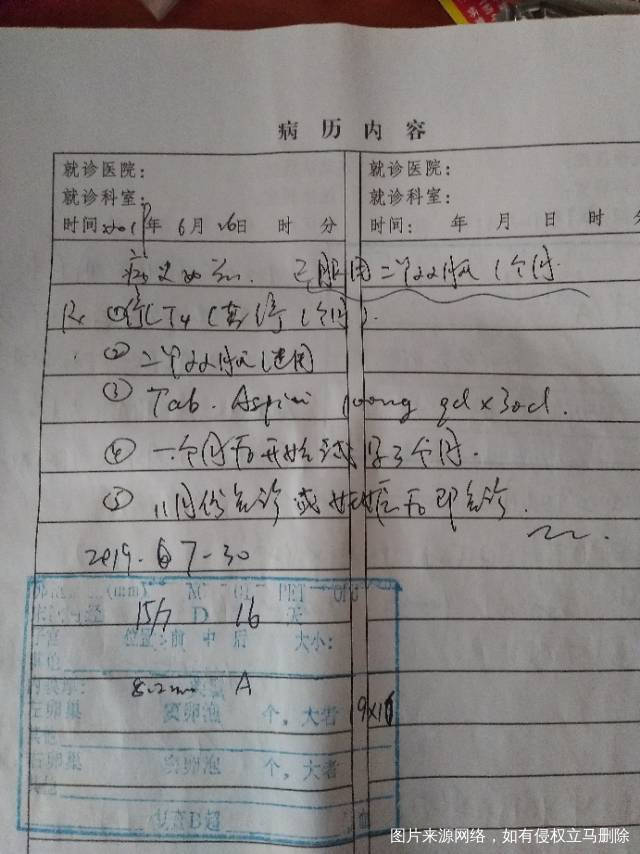 病 历 内 容
就诊医院: 就诊医院:
就诊科室: 就诊科室:
时间 2019年 6月 26日 时 分 时间: 年 月 日 时 分
病史如前. 已服用二甲双胍 1个月.
① 停 LT4 ( 1个月).
② 二甲双胍 续用
③ Tab. Aspirin 100mg qd x 30d.
④ 一个月后开始试孕3个月.
⑤ 11月份复诊 或妊娠后即复诊.
2019. 7-30
(mm)
15/7 D 16 天
子宫 位置:前 中 后 大小:
8.2mm A
左卵巢 窦卵泡 个, 大者 19x16
右卵巢 窦卵泡 个, 大者
B超
图片来源网络，如有侵权立马删除